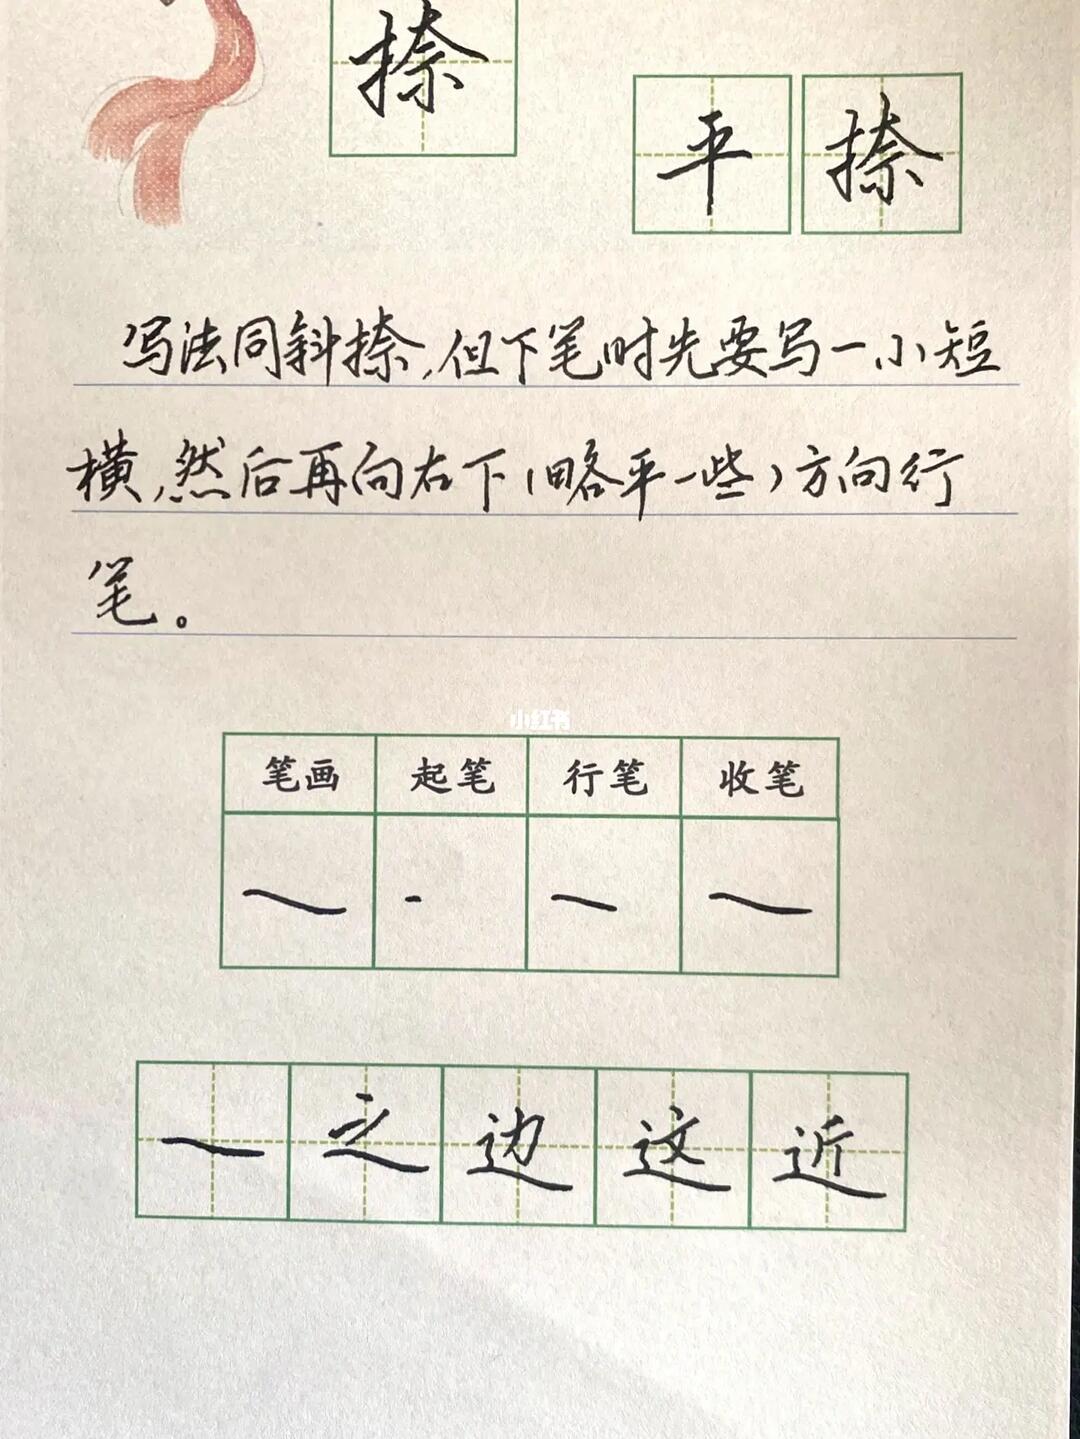 捺
平捺
写法同斜捺,但下笔时先要写一小短
横,然后再向右下(略平一些)方向行
笔。
小红书
笔画 起笔 行笔 收笔
之 边 这 近